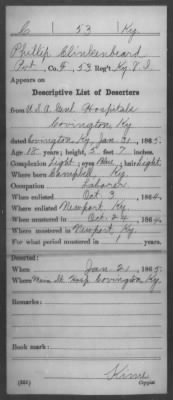 C 53 Ky.
Phillip Clinkenbeard
Pvt., Co. F, 53 Reg't Ky. V. I.
Appears on
Descriptive List of Deserters
from U.S.A. Genl Hospitals
Covington, Ky.
dated Covington, Ky. Jan 21, 1865.
Age 18 years; height 5 feet 7 inches.
Complexion Light; eyes Blue; hair Light.
Where born Campbell, Ky.
Occupation Laborer
When enlisted Oct. 3, 1864.
Where enlisted Newport, Ky.
When mustered in Oct. 24, 1864.
Where mustered in Newport, Ky.
For what period mustered in 1 years.
Deserted:
When Jan 2, 1865.
Where Main St. Hosp. Covington Ky.
Remarks:
Book mark:
Kime
Copyist.